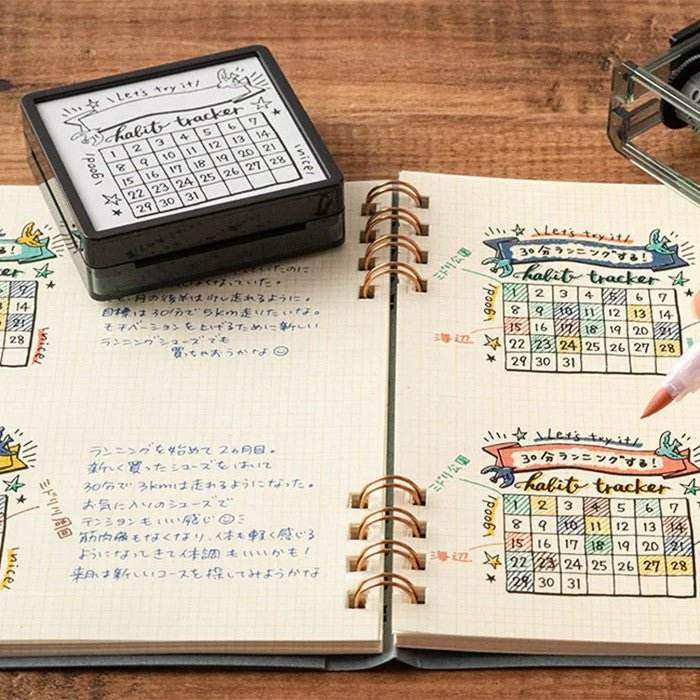 Let's try it!
habit tracker
good!
nice!
1 2 3 4 5 6 7
8 9 10 11 12 13 14
15 16 17 18 19 20 21
22 23 24 25 26 27 28
29 30 31
る!
cker
7
14
21
28
nice!
目標は30分で5km走りたいな。
モチベーションを上げるために新しい
ランニングシューズでも
買っちゃおうかな
ミドリ川周回
nice!
ランニングを始めて2ヵ月目。
新しく買ったシューズをはいて
30分で3kmは走れるようになった。
お気に入りのシューズで
テンションもいい感じ
筋肉痛もなくなり、体も軽く感じる
ようになってきて体調もいいかも!
来月は新しいコースを探してみようかな
Let's try it!
30分ランニングする!
habit tracker
good!
ミドリ公園
海辺
1 2 3 4 5 6 7
8 9 10 11 12 13 14
15 16 17 18 19 20 21
22 23 24 25 26 27 28
29 30 31
Let's try it!
30分ランニングする!
habit tracker
good!
ミドリ公園
海辺
1 2 3 4 5 6 7
8 9 10 11 12 13 14
15 16 17 18 19 20 21
22 23 24 25 26 27 28
29 30 31